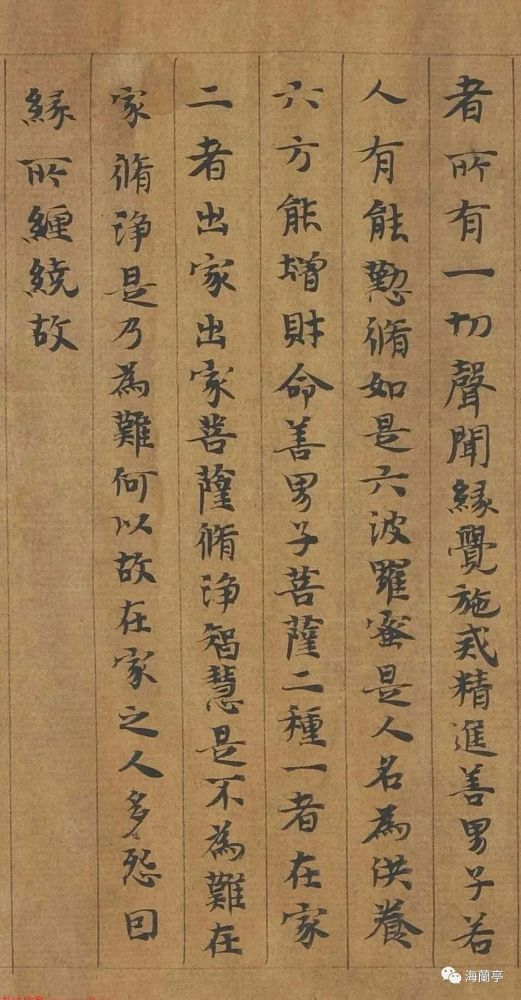 者所有一切聲聞緣覺施戒精進善男子若
人有能懃脩如是六波羅蜜是人名為供養
六方能增財命善男子菩薩二種一者在家
二者出家出家菩薩脩淨智慧是不為難在
家脩淨是乃為難何以故在家之人多惡因
緣所纏繞故
海蘭亭